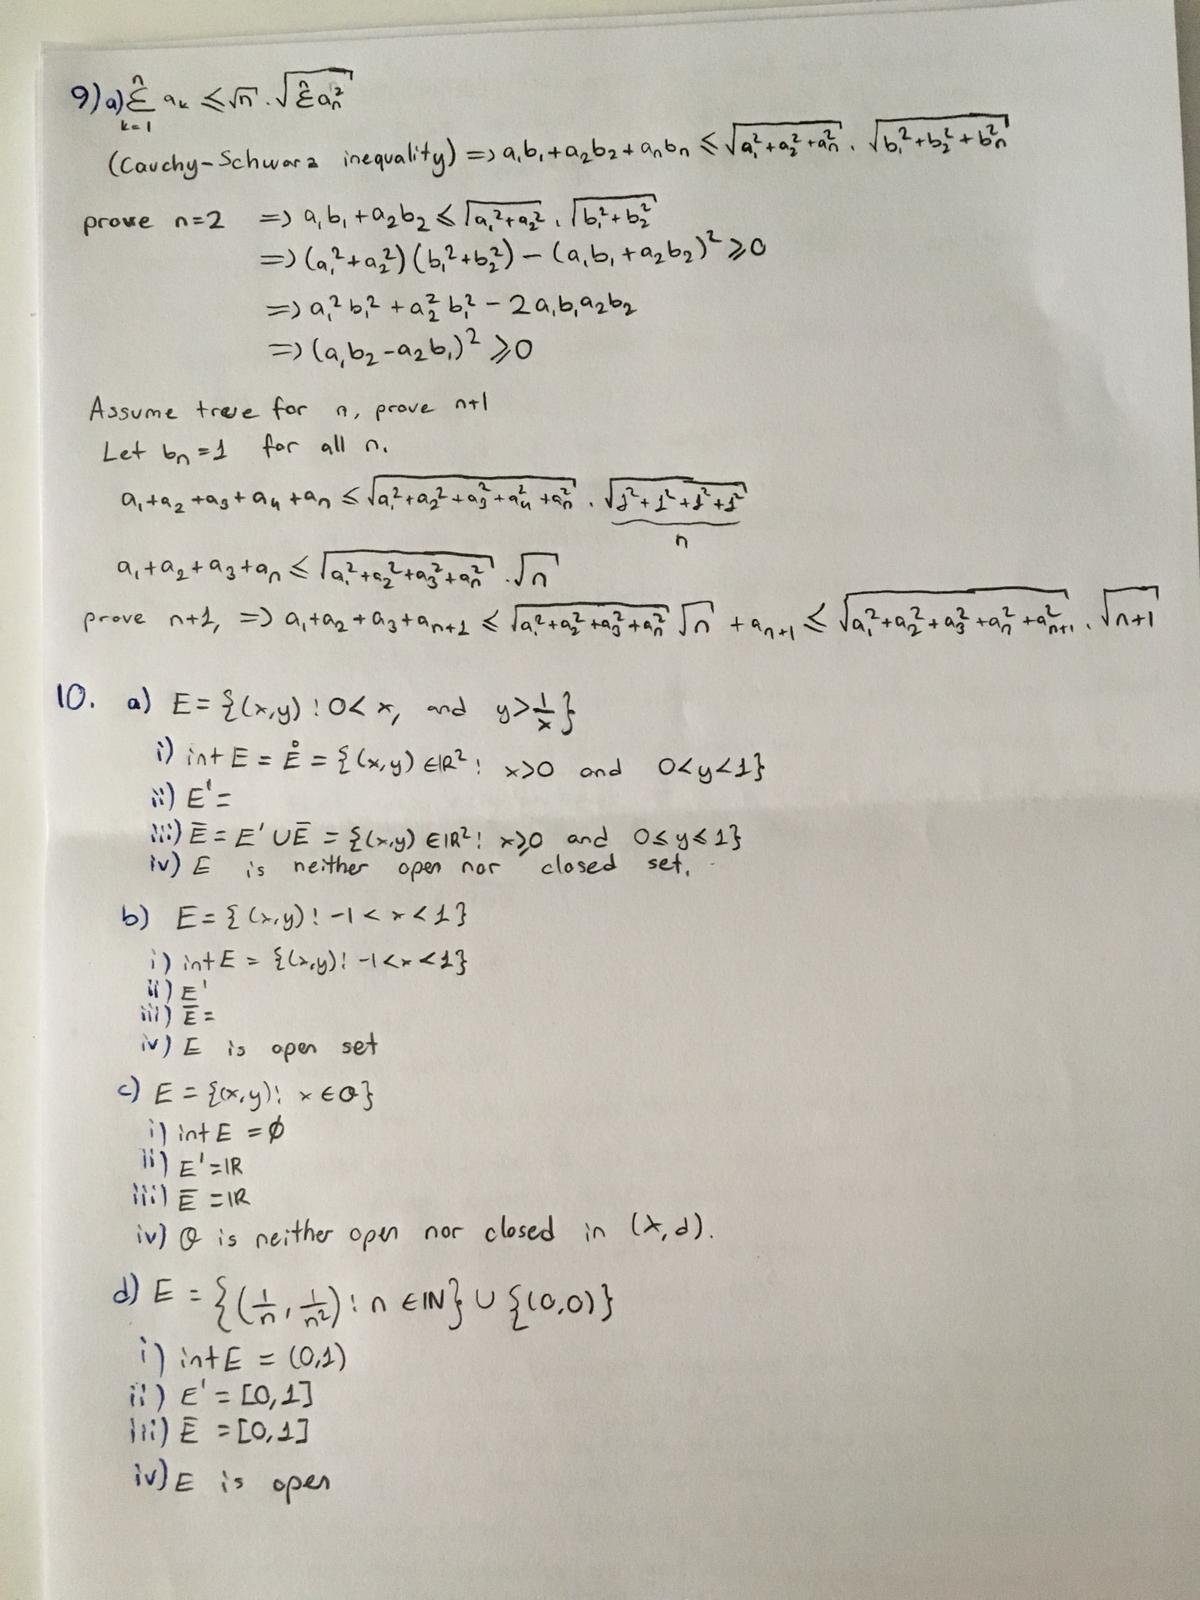 9) a) n Σ k=1 aₖ ≤ √n . √(n Σ aₙ²)
(Cauchy-Schwarz inequality) => a₁b₁+a₂b₂+aₙbₙ ≤ √(a₁²+a₂²+aₙ²) . √(b₁²+b₂²+bₙ²)
prove n=2 => a₁b₁+a₂b₂ ≤ √(a₁²+a₂²) . √(b₁²+b₂²)
=> (a₁²+a₂²)(b₁²+b₂²) - (a₁b₁+a₂b₂)² ≥ 0
=> a₁²b₁² + a₂²b₁² - 2a₁b₁a₂b₂
=> (a₁b₂-a₂b₁)² ≥ 0
Assume true for n, prove n+1
Let bₙ=1 for all n.
a₁+a₂+a₃+a₄+aₙ ≤ √(a₁²+a₂²+a₃²+a₄²+aₙ²) . √(1²+1²+1²+1²)
n
a₁+a₂+a₃+aₙ ≤ √(a₁²+a₂²+a₃²+aₙ²) . √n
prove n+1, => a₁+a₂+a₃+aₙ₊₁ ≤ √(a₁²+a₂²+a₃²+aₙ²) √n + aₙ₊₁ ≤ √(a₁²+a₂²+a₃²+aₙ²+aₙ₊₁²) . √(n+1)
10. a) E = {(x,y) : 0 < x, and y > 1/x}
i) int E = E̊ = {(x,y) ∈ ℝ² : x>0 and 0<y<1}
ii) E' =
iii) Ē = E' ∪ Ē = {(x,y) ∈ ℝ² : x≥0 and 0≤y≤1}
iv) E is neither open nor closed set.
b) E = {(x,y) : -1 < x < 1}
i) int E = {(x,y) : -1 < x < 1}
ii) E'
iii) Ē =
iv) E is open set
c) E = {(x,y) : x ∈ Q}
i) int E = ∅
ii) E' = ℝ
iii) Ē = ℝ
iv) Q is neither open nor closed in (X,d).
d) E = {(1/n, 1/n²) : n ∈ ℕ} ∪ {(0,0)}
i) int E = (0,1)
ii) E' = [0,1]
iii) Ē = [0,1]
iv) E is open